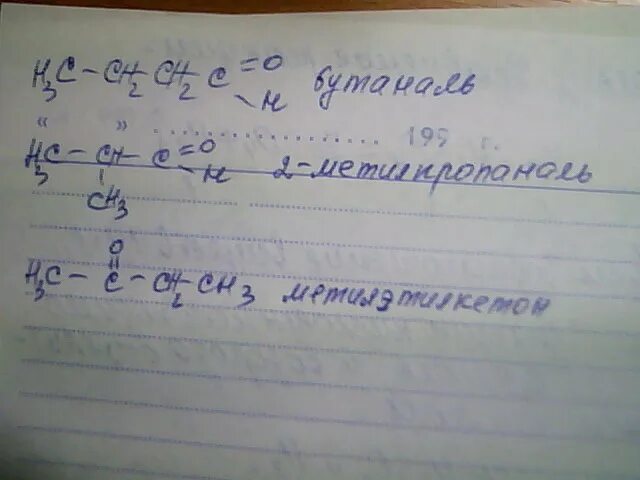 H₃C – CH₂ CH₂ C =O
\ H бутаналь
" " 199 г.
H₃C – CH – C =O
\ H 2-метилпропаналь
CH₃
O
H₃C – C – CH₂ CH₃ метилэтилкетон